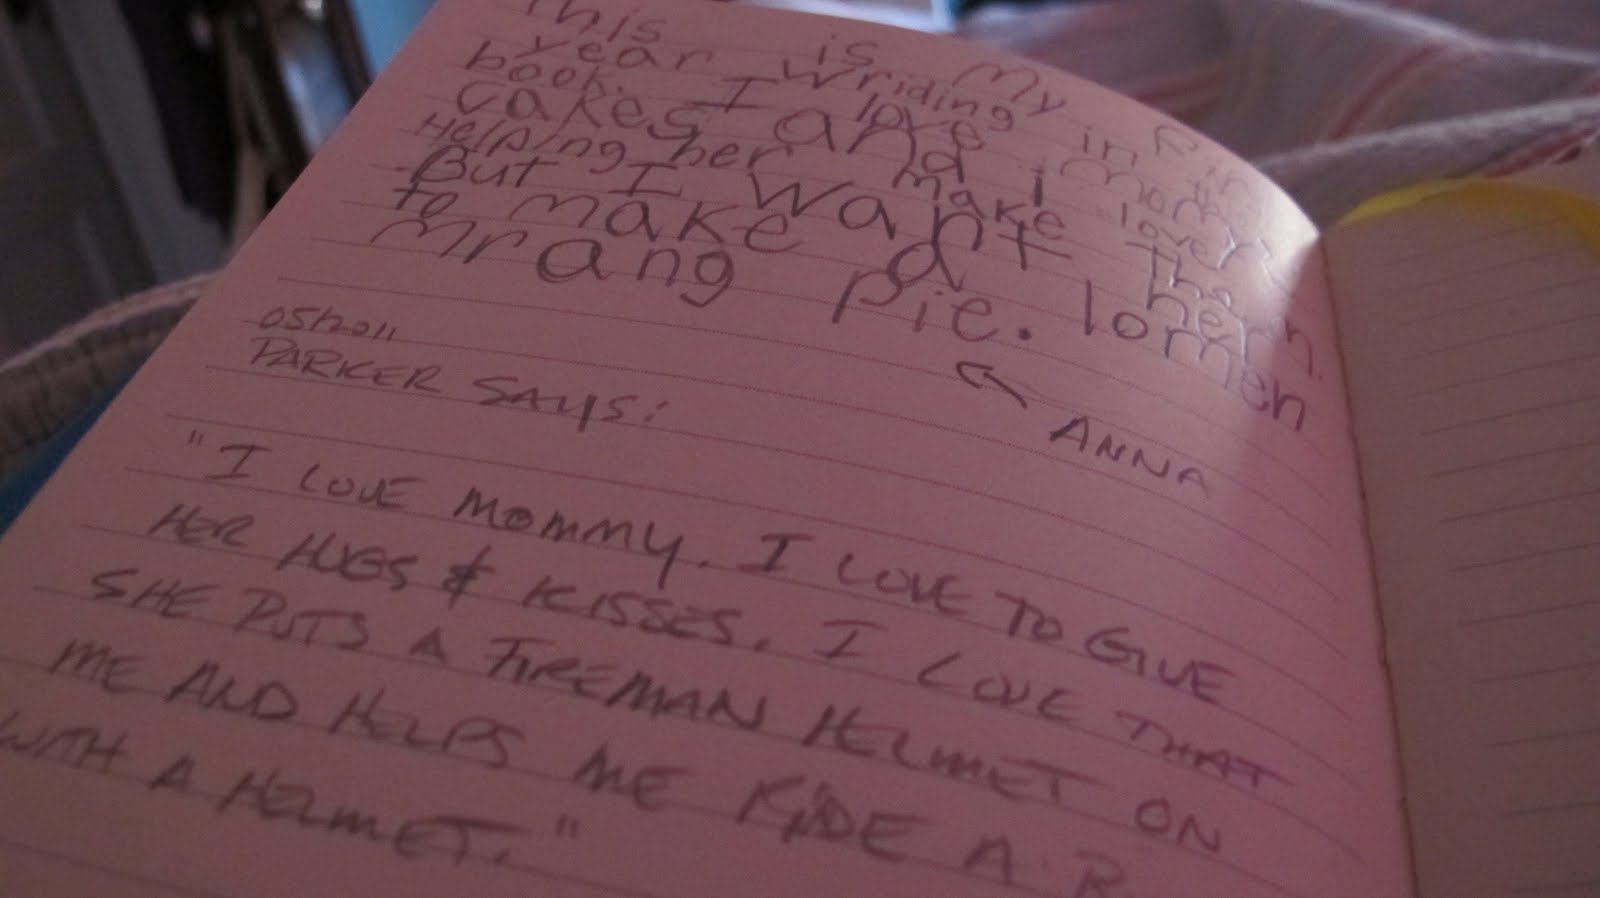 This is My
year wriding in
book. I love
cakes and i
Helping her make them
But I want
to make a lomen
mrang pie.
ANNA
05/2011
PARKER SAYS:
"I LOVE MOMMY. I LOVE TO GIVE
HER HUGS & KISSES. I LOVE THAT
SHE PUTS A FIREMAN HELMET ON
ME AND HELPS ME RIDE A
WITH A HELMET."